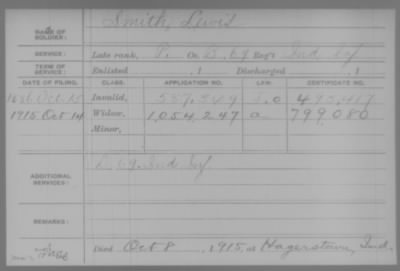 Smith, Lewis
NAME OF SOLDIER:
SERVICE: Late rank, P. Co. B, 69 Reg't Ind Inf
TERM OF SERVICE: Enlisted , 1 Discharged , 1
DATE OF FILING. CLASS. APPLICATION NO. LAW. CERTIFICATE NO.
Oct Invalid, 557,549
1915 Oct 14 Widow, 1,054,247 a 799080
Minor,
ADDITIONAL SERVICES: Ind Inf
REMARKS:
Died Oct 8, 1915, at Hagerstown, Ind.